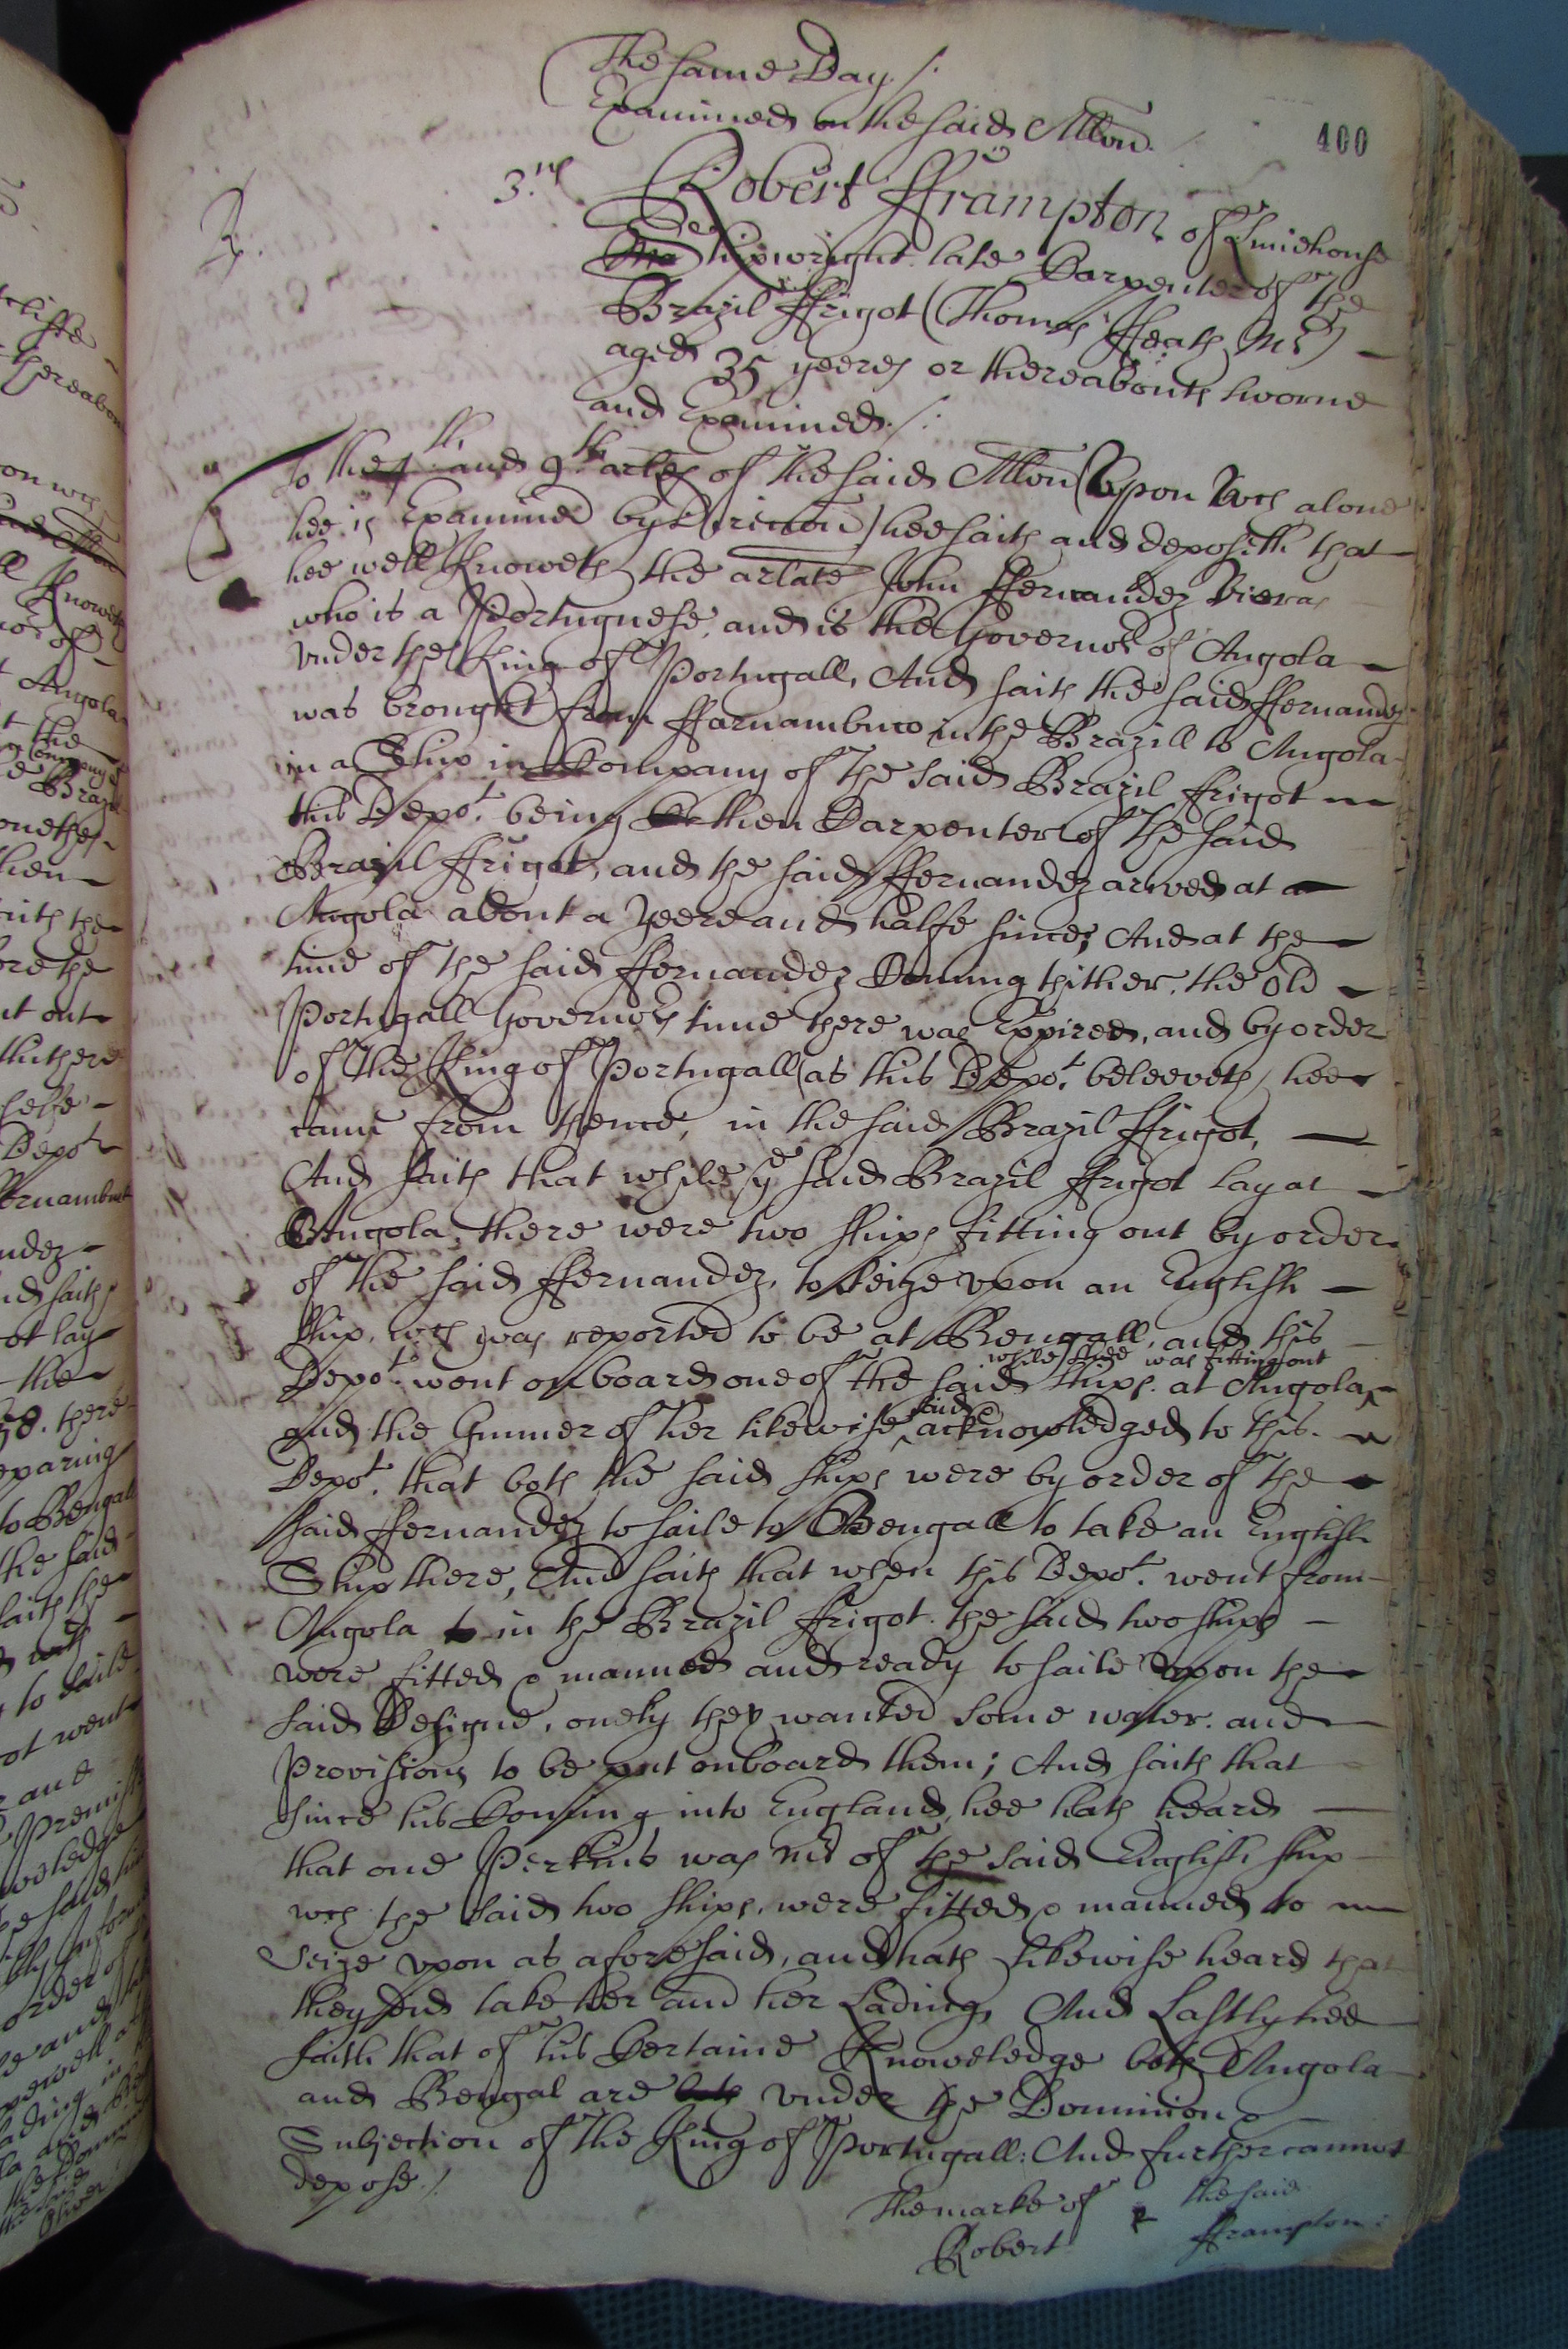 The same Day./:
Examined on the said Allon.
400
3.
3.rd
Robert fframpton of Limehouse
Shipwright late Carpenter of the
Brazil ffrigot (Thomas Heath Mr)
aged 35 yeeres or thereabouts sworne
and Examined./:
To the 4th and 9th arles of the said Allon (upon wch alone
hee is Examined by direction) hee saith and deposeth that
hee well knoweth the arlate John ffernandez Vieras
who is a Portuguese, and is the Governor of Angola
vnder the King of Portugall, And saith the said ffernandez
was brought from ffarnambuco in the Brazill to Angola
in a Ship in Company of the said Brazil frigot
this Depot. being then Carpenter of the said
Brazil ffrigot, and the said ffernandez arived at
Angola about a yeere and halfe since; And at the
time of the said ffernandez Coming thither, the old
Portugall Governors time there was Expired, and by order
of the King of Portugall (as this Depot. beleeveth) hee
came from thence, in the said Brazil ffrigot,
And saith that while ye said Brazil ffrigot lay at
Angola, there were two ships fitting out by order
of the said ffernandez, to seize vpon an English
ship, wch was reported to be at Bengall, and this
while shee was fitting out
Depot. went onboard one of the said ships. at Angola,
said
and the Gunner of her likewise acknowledged to this
Depot. that both the said ships were by order of the
said ffernandez to saile to Bengall to take an English
Ship there, And saith that when this Depot. went from
Angola to in the Brazil ffrigot. the said two ships
were fitted & manned and ready to saile vpon the
said Designe, onely they wanted some water. and
Provisions to be put onboard them; And saith that
since his Coming into England, hee hath heard
that one Perkins was Mr of the said English ship
wch the said two ships, were fitted & manned to
seize vpon as aforesaid, and hath likewise heard that
they did take her and her Lading, And Lastly hee
saith that of his Certaine Knoweledge both Angola
and Bengal are both vnder the Dominion &
Subjection of the King of Portugall: And further cannot
depose./
The marke of the said
Robert fframpton: